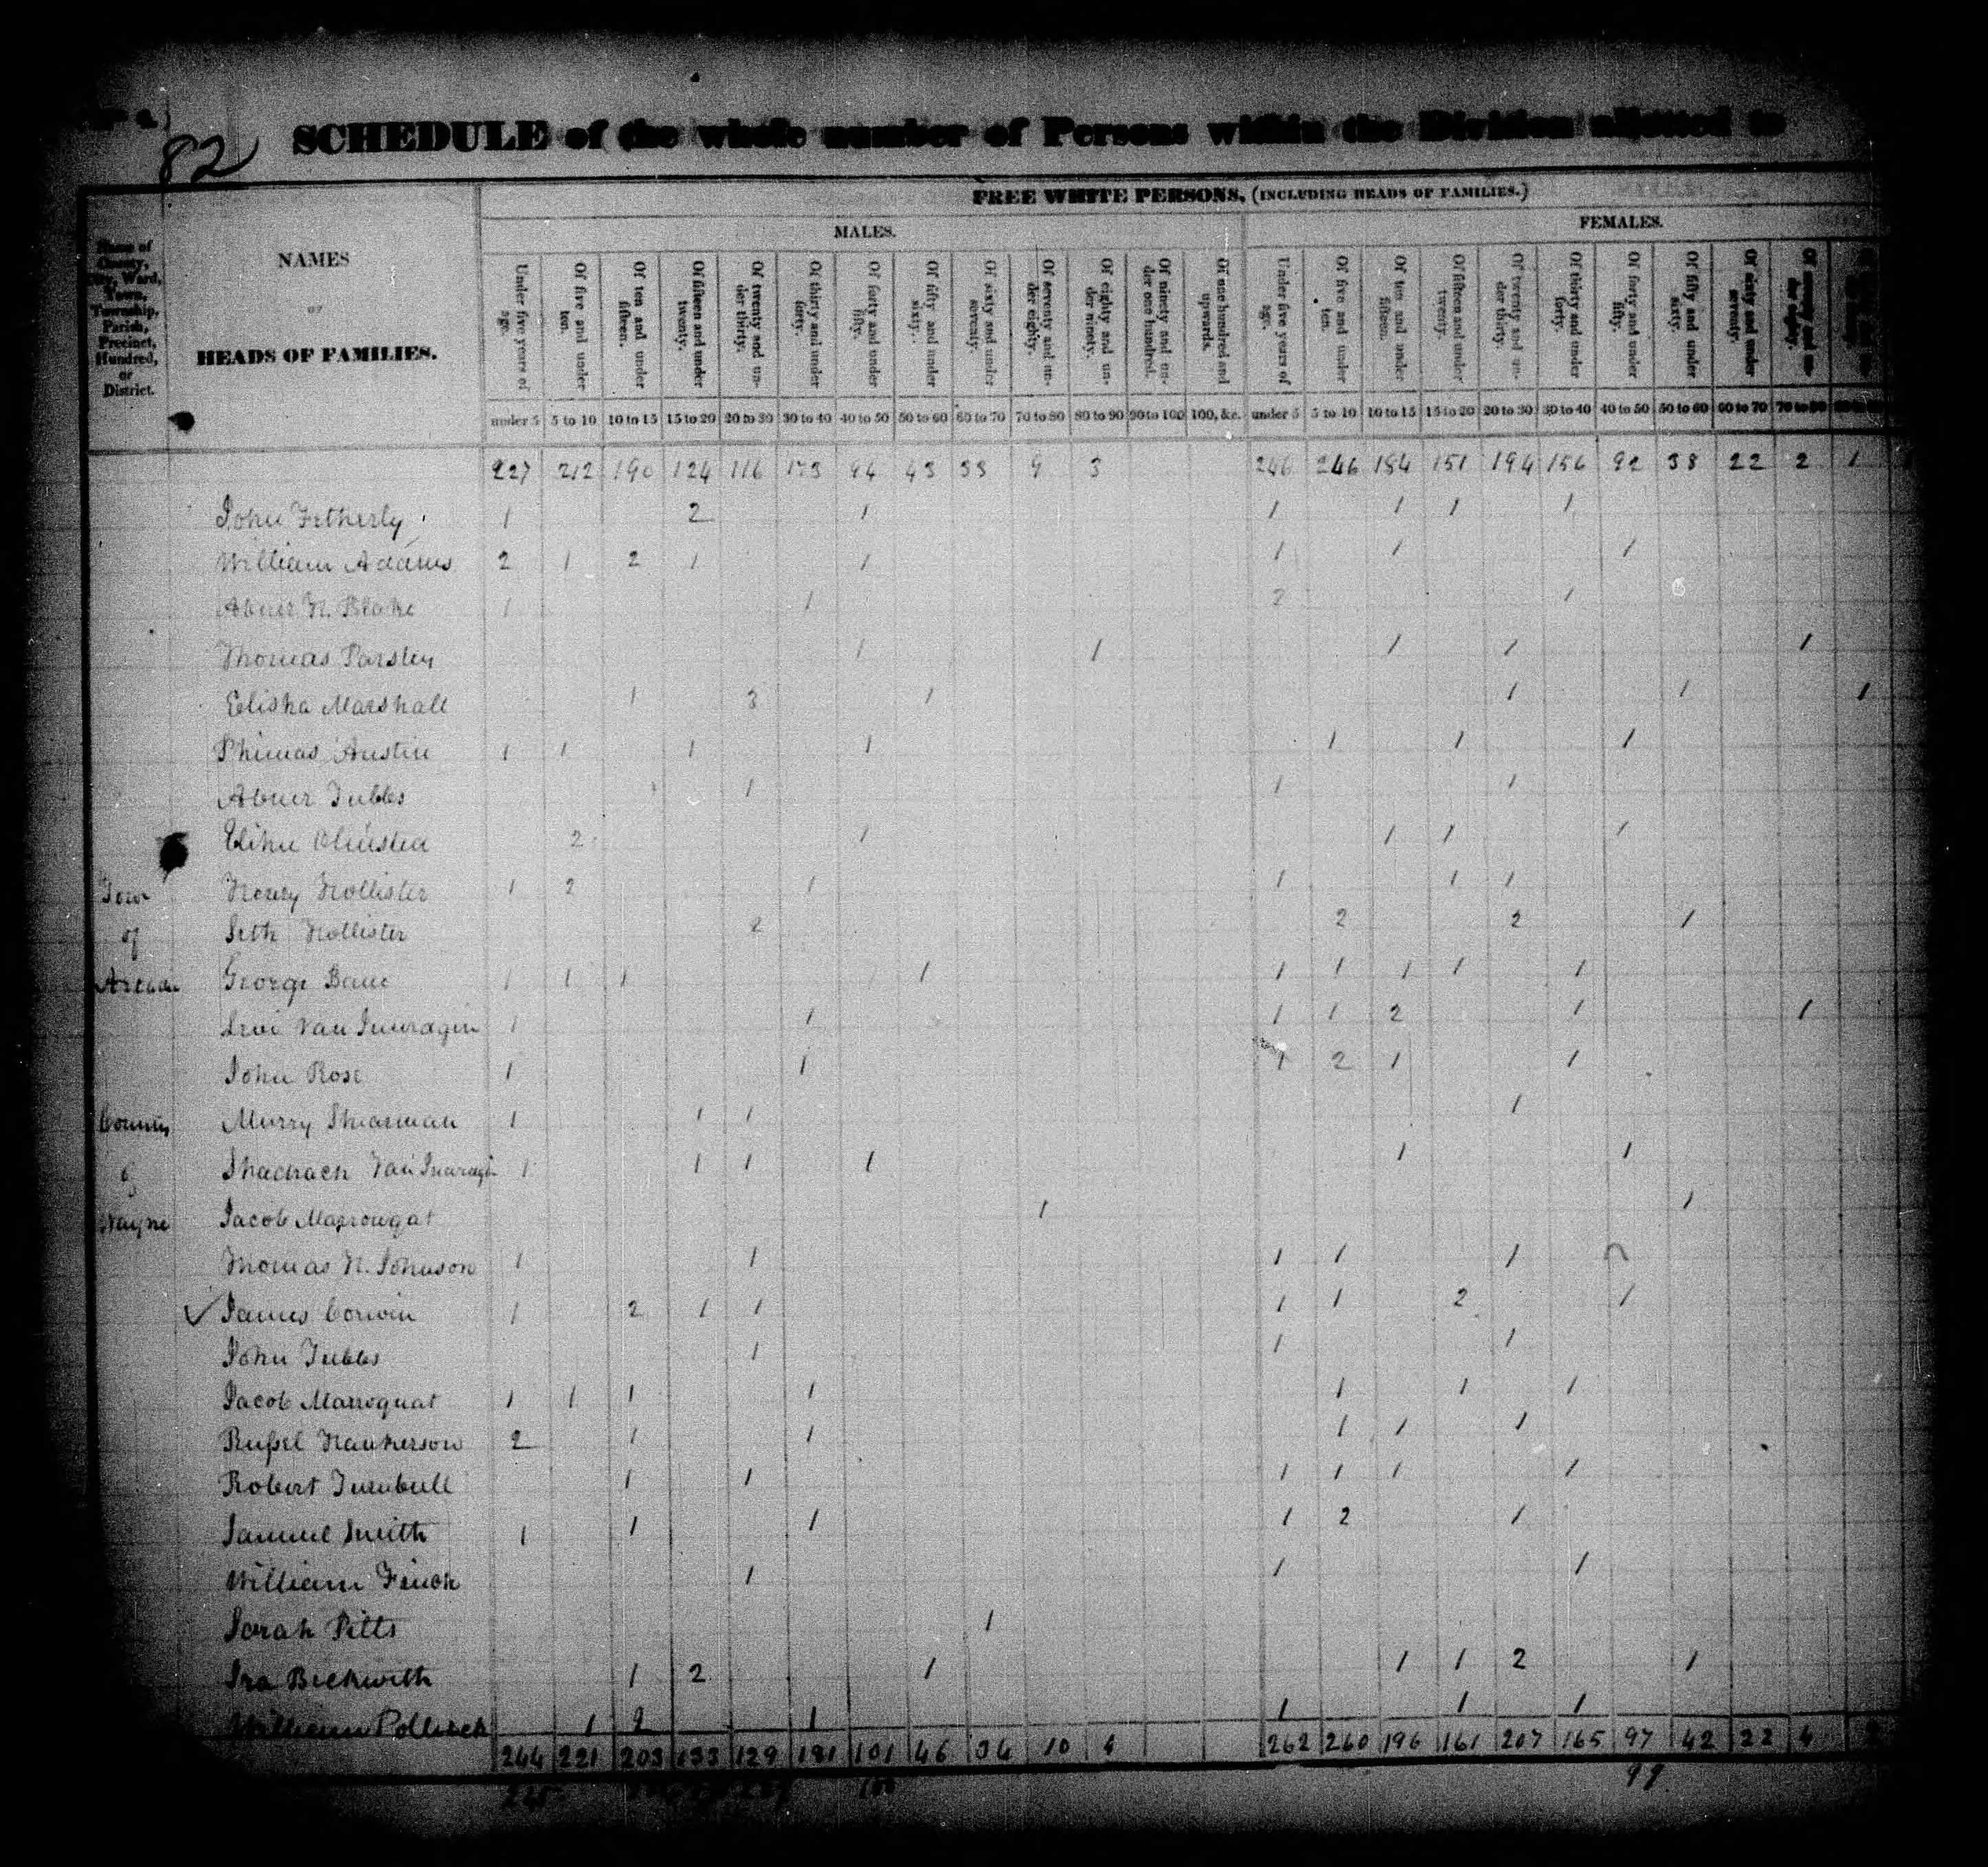 82
SCHEDULE of the whole number of Persons within the Division allotted to
FREE WHITE PERSONS, (INCLUDING HEADS OF FAMILIES.)
MALES. FEMALES.
Name of County, City, Ward, Town, Township, Parish, Precinct, Hundred, or District.
NAMES
OF
HEADS OF FAMILIES.
Under five years of age. Of five and under ten. Of ten and under fifteen. Of fifteen and under twenty. Of twenty and under thirty. Of thirty and under forty. Of forty and under fifty. Of fifty and under sixty. Of sixty and under seventy. Of seventy and under eighty. Of eighty and under ninety. Of ninety and under one hundred. Of one hundred and upwards. Under five years of age. Of five and under ten. Of ten and under fifteen. Of fifteen and under twenty. Of twenty and under thirty. Of thirty and under forty. Of forty and under fifty. Of fifty and under sixty. Of sixty and under seventy. Of seventy and under eighty.
under 5 5 to 10 10 to 15 15 to 20 20 to 30 30 to 40 40 to 50 50 to 60 60 to 70 70 to 80 80 to 90 90 to 100 100, &c. under 5 5 to 10 10 to 15 15 to 20 20 to 30 30 to 40 40 to 50 50 to 60 60 to 70 70 to 80
227 212 190 124 116 173 94 43 33 9 3 246 246 184 151 194 156 92 38 22 2 1
John Fetherly 1 2 1 1 1 1 1
William Adams 2 1 2 1 1 1 1 1
Abner H. Blake 1 1 2 1
Thomas Parsley 1 1 1 1 1
Elisha Marshall 1 3 1 1 1 1
Phineas Austin 1 1 1 1 1 1 1
Abner Tubbs 1 1 1
Elihu Olmsted 2 1 1 1 1
Town Henry Hollister 1 2 1 1 1 1
of Seth Hollister 2 2 2 1
Arcadia George Bane 1 1 1 1 1 1 1 1 1
Levi Van 1 1 1 1 2 1 1
John Rose 1 1 1 2 1 1
County Murry Shearman 1 1 1 1
of Shadrach Van 1 1 1 1 1 1
Wayne Jacob 1 1
Thomas H. Johnson 1 1 1 1 1
James Corwin 1 2 1 1 1 1 2 1
John Tubbs 1 1 1
Jacob 1 1 1 1 1 1 1
Russel Hankerson 2 1 1 1 1 1
Robert Turnbull 1 1 1 1 1 1
Samuel Smith 1 1 1 1 2 1
William Finch 1 1 1
Sarah Pitts 1
Ira Beckwith 1 2 1 1 1 2 1
William Pollock 1 2 1 1 1 1
244 221 203 133 129 181 101 46 34 10 4 262 260 196 161 207 165 97 42 22 4 2